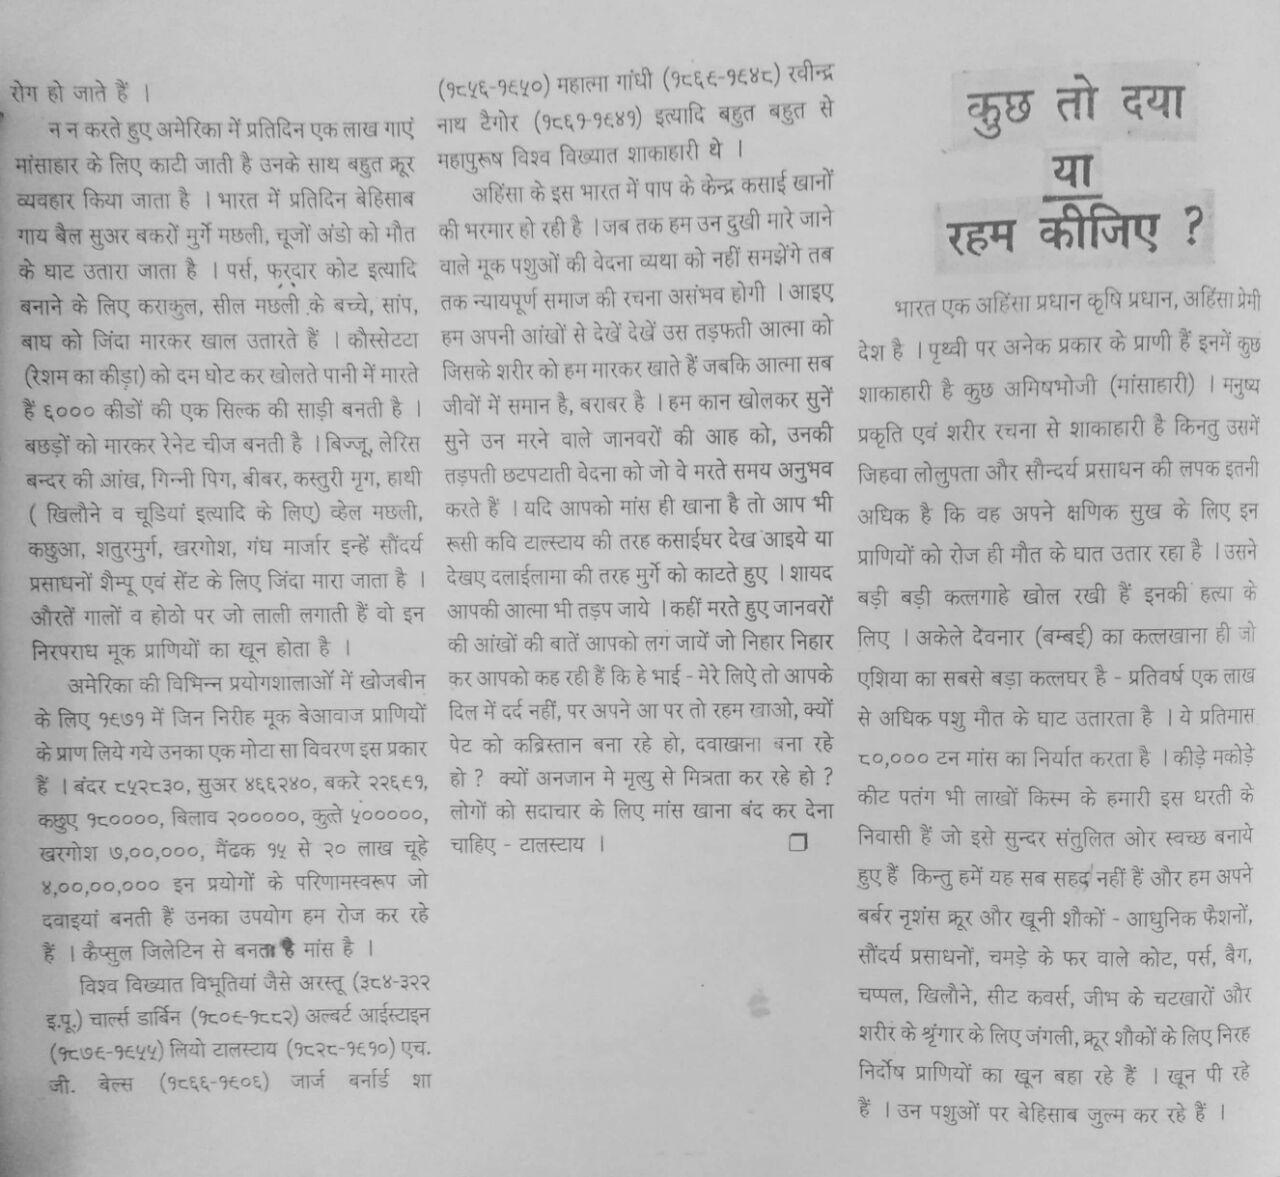 रोग हो जाते हैं ।
न न करते हुए अमेरिका में प्रतिदिन एक लाख गाएं
मांसाहार के लिए काटी जाती है उनके साथ बहुत क्रूर
व्यवहार किया जाता है । भारत में प्रतिदिन बेहिसाब
गाय बैल सुअर बकरों मुर्गे मछली, चूजों अंडो को मौत
के घाट उतारा जाता है । पर्स, फरदार कोट इत्यादि
बनाने के लिए कराकुल, सील मछली के बच्चे, सांप,
बाघ को जिंदा मारकर खाल उतारते हैं । कौस्सेटटा
(रेशम का कीड़ा) को दम घोट कर खोलते पानी में मारते
हैं ६००० कीडों की एक सिल्क की साड़ी बनती है ।
बछड़ों को मारकर रेनेट चीज बनती है । बिज्जू, लेरिस
बन्दर की आंख, गिन्नी पिग, बीबर, कस्तुरी मृग, हाथी
( खिलौने व चूडियां इत्यादि के लिए) व्हेल मछली,
कछुआ, शतुरमुर्ग, खरगोश, गंध मार्जार इन्हें सौंदर्य
प्रसाधनों शैम्पू एवं सेंट के लिए जिंदा मारा जाता है ।
औरतें गालों व होठो पर जो लाली लगाती हैं वो इन
निरपराध मूक प्राणियों का खून होता है ।
अमेरिका की विभिन्न प्रयोगशालाओं में खोजबीन
के लिए १९७१ में जिन निरीह मूक बेआवाज प्राणियों
के प्राण लिये गये उनका एक मोटा सा विवरण इस प्रकार
हैं । बंदर ८५२८३०, सुअर ४६६२४०, बकरे २२६९१,
कछुए १८००००, बिलाव २०००००, कुत्ते ५०००००,
खरगोश ७,००,०००, मैंढक १५ से २० लाख चूहे
४,००,००,००० इन प्रयोगों के परिणामस्वरूप जो
दवाइयां बनती हैं उनका उपयोग हम रोज कर रहे
हैं । कैप्सुल जिलेटिन से बनता है मांस है ।
विश्व विख्यात विभूतियां जैसे अरस्तू (३८४-३२२
इ.पू.) चार्ल्स डार्बिन (१८०९-१८८२) अल्बर्ट आईस्टाइन
(१८७९-१९५५) लियो टालस्टाय (१८२८-१९१०) एच.
जी. बेल्स (१८६६-१९०६) जार्ज बर्नार्ड शा
(१८५६-१९५०) महात्मा गांधी (१८६९-१९४८) रवीन्द्र
नाथ टैगोर (१८६१-१९४१) इत्यादि बहुत बहुत से
महापुरूष विश्व विख्यात शाकाहारी थे ।
अहिंसा के इस भारत में पाप के केन्द्र कसाई खानों
की भरमार हो रही है । जब तक हम उन दुखी मारे जाने
वाले मूक पशुओं की वेदना व्यथा को नहीं समझेंगे तब
तक न्यायपूर्ण समाज की रचना असंभव होगी । आइए
हम अपनी आंखों से देखें देखें उस तड़फती आत्मा को
जिसके शरीर को हम मारकर खाते हैं जबकि आत्मा सब
जीवों में समान है, बराबर है । हम कान खोलकर सुनें
सुने उन मरने वाले जानवरों की आह को, उनकी
तड़पती छटपटाती वेदना को जो वे मरते समय अनुभव
करते हैं । यदि आपको मांस ही खाना है तो आप भी
रूसी कवि टाल्स्टाय की तरह कसाईघर देख आइये या
देखए दलाईलामा की तरह मुर्गे को काटते हुए । शायद
आपकी आत्मा भी तड़प जाये । कहीं मरते हुए जानवरों
की आंखों की बातें आपको लग जायें जो निहार निहार
कर आपको कह रही हैं कि हे भाई - मेरे लिऐ तो आपके
दिल में दर्द नहीं, पर अपने आ पर तो रहम खाओ, क्यों
पेट को कब्रिस्तान बना रहे हो, दवाखाना बना रहे
हो ? क्यों अनजान मे मृत्यु से मित्रता कर रहे हो ?
लोगों को सदाचार के लिए मांस खाना बंद कर देना
चाहिए - टालस्टाय । ❐
कुछ तो दया
या
रहम कीजिए ?
भारत एक अहिंसा प्रधान कृषि प्रधान, अहिंसा प्रेमी
देश है । पृथ्वी पर अनेक प्रकार के प्राणी हैं इनमें कुछ
शाकाहारी है कुछ अमिषभोजी (मांसाहारी) । मनुष्य
प्रकृति एवं शरीर रचना से शाकाहारी है किनतु उसमें
जिहवा लोलुपता और सौन्दर्य प्रसाधन की लपक इतनी
अधिक है कि वह अपने क्षणिक सुख के लिए इन
प्राणियों को रोज ही मौत के घात उतार रहा है । उसने
बड़ी बड़ी कत्लगाहे खोल रखी हैं इनकी हत्या के
लिए । अकेले देवनार (बम्बई) का कत्लखाना ही जो
एशिया का सबसे बड़ा कत्लघर है - प्रतिवर्ष एक लाख
से अधिक पशु मौत के घाट उतारता है । ये प्रतिमास
८०,००० टन मांस का निर्यात करता है । कीड़े मकोड़े
कीट पतंग भी लाखों किस्म के हमारी इस धरती के
निवासी हैं जो इसे सुन्दर संतुलित ओर स्वच्छ बनाये
हुए हैं किन्तु हमें यह सब सहद नहीं हैं और हम अपने
बर्बर नृशंस क्रूर और खूनी शौकों - आधुनिक फैशनों,
सौंदर्य प्रसाधनों, चमड़े के फर वाले कोट, पर्स, बैग,
चप्पल, खिलौने, सीट कवर्स, जीभ के चटखारों और
शरीर के श्रृंगार के लिए जंगली, क्रूर शौकों के लिए निरह
निर्दोष प्राणियों का खून बहा रहे हैं । खून पी रहे
हैं । उन पशुओं पर बेहिसाब जुल्म कर रहे हैं ।